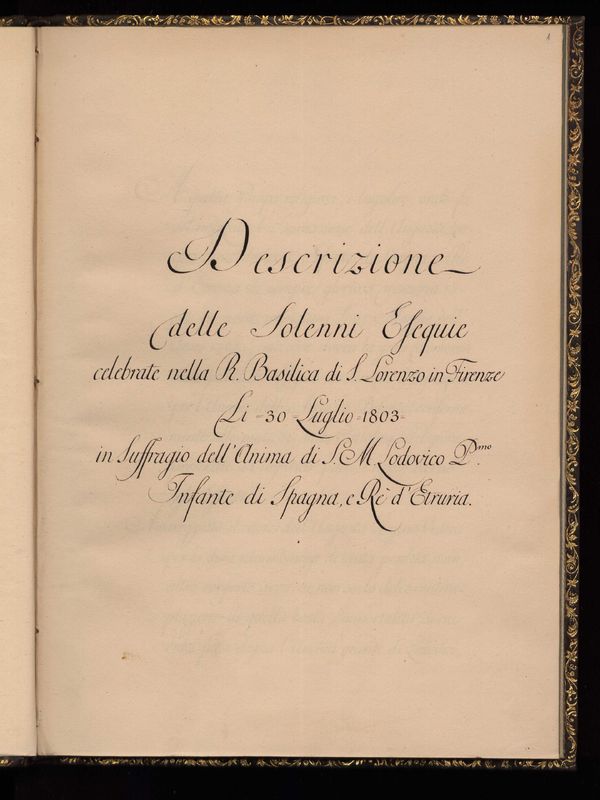 1
Descrizione
delle Solenni Esequie
celebrate nella R. Basilica di S. Lorenzo in Firenze
Li =30 Luglio =1803=
in Suffragio dell'Anima di S. M. Lodovico P.mo
Infante di Spagna, e Rè d'Etruria.